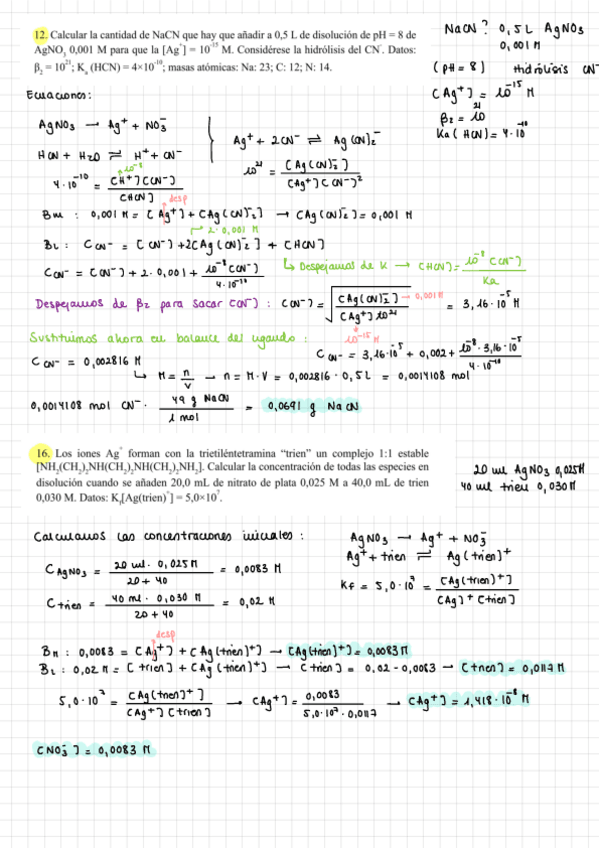 12. Calcular la cantidad de NaCN que hay que añadir a 0,5 L de disolución de pH = 8 de
AgNO₃ 0,001 M para que la [Ag⁺] = 10⁻¹⁵ M. Considérese la hidrólisis del CN⁻. Datos:
β₂ = 10²¹; Kₐ (HCN) = 4×10⁻¹⁰; masas atómicas: Na: 23; C: 12; N: 14.
NaCN? 0,5 L AgNO₃
0,001 M
(pH = 8) Hidrólisis CN⁻
[Ag⁺] = 10⁻¹⁵ M
β₂ = 10²¹
Ka (HCN) = 4·10⁻¹⁰
Ecuaciones:
AgNO₃ → Ag⁺ + NO₃⁻
HCN + H₂O ⇌ H⁺ + CN⁻
Ag⁺ + 2CN⁻ ⇌ Ag(CN)₂⁻
10⁻⁸
4·10⁻¹⁰ = [H⁺][CN⁻] / [HCN]
10²¹ = [Ag(CN)₂⁻] / [Ag⁺][CN⁻]²
desp
BM: 0,001 M = [Ag⁺] + [Ag(CN)₂⁻] → [Ag(CN)₂⁻] = 0,001 M
2·0,001 M
BL: C CN⁻ = [CN⁻] + 2[Ag(CN)₂⁻] + [HCN]
↳ Despejamos de K → [HCN] = 10⁻⁸ [CN⁻] / Ka
C CN⁻ = [CN⁻] + 2·0,001 + 10⁻⁸ [CN⁻] / 4·10⁻¹⁰
Despejamos de β₂ para sacar [CN⁻]: [CN⁻] = √([Ag(CN)₂⁻] / [Ag⁺] 10²¹) = 3,16·10⁻⁵ M
→ 0,001 M
10⁻¹⁵ M
Sustituimos ahora en balance del ligando:
C CN⁻ = 3,16·10⁻⁵ + 0,002 + 10⁻⁸·3,16·10⁻⁵ / 4·10⁻¹⁰
C CN⁻ = 0,002816 M
↳ M = n/V → n = M·V = 0,002816·0,5 L = 0,0014108 mol
0,0014108 mol CN⁻ · 49 g NaCN / 1 mol = 0,0691 g NaCN
16. Los iones Ag⁺ forman con la trietiléntetramina “trien” un complejo 1:1 estable
[NH₂(CH₂)₂NH(CH₂)₂NH(CH₂)₂NH₂]. Calcular la concentración de todas las especies en
disolución cuando se añaden 20,0 mL de nitrato de plata 0,025 M a 40,0 mL de trien
0,030 M. Datos: K_f[Ag(trien)⁺] = 5,0×10⁷.
20 ml AgNO₃ 0,025M
40 ml trien 0,030M
Calculamos las concentraciones iniciales:
AgNO₃ → Ag⁺ + NO₃⁻
Ag⁺ + trien ⇌ Ag(trien)⁺
C AgNO₃ = 20 ml · 0,025M / 20 + 40 = 0,0083 M
Kf = 5,0·10⁷ = [Ag(trien)⁺] / [Ag]⁺ [trien]
C trien = 40 ml · 0,030 M / 20 + 40 = 0,02 M
desp
BM: 0,0083 = [Ag⁺] + [Ag(trien)⁺] → [Ag(trien)⁺] = 0,0083 M
BL: 0,02 M = [trien] + [Ag(trien)⁺] → [trien] = 0,02 - 0,0083 → [trien] = 0,0117 M
5,0·10⁷ = [Ag(trien)⁺] / [Ag⁺][trien] → [Ag⁺] = 0,0083 / 5,0·10⁷·0,0117 → [Ag⁺] = 1,418·10⁻⁸ M
[NO₃⁻] = 0,0083 M